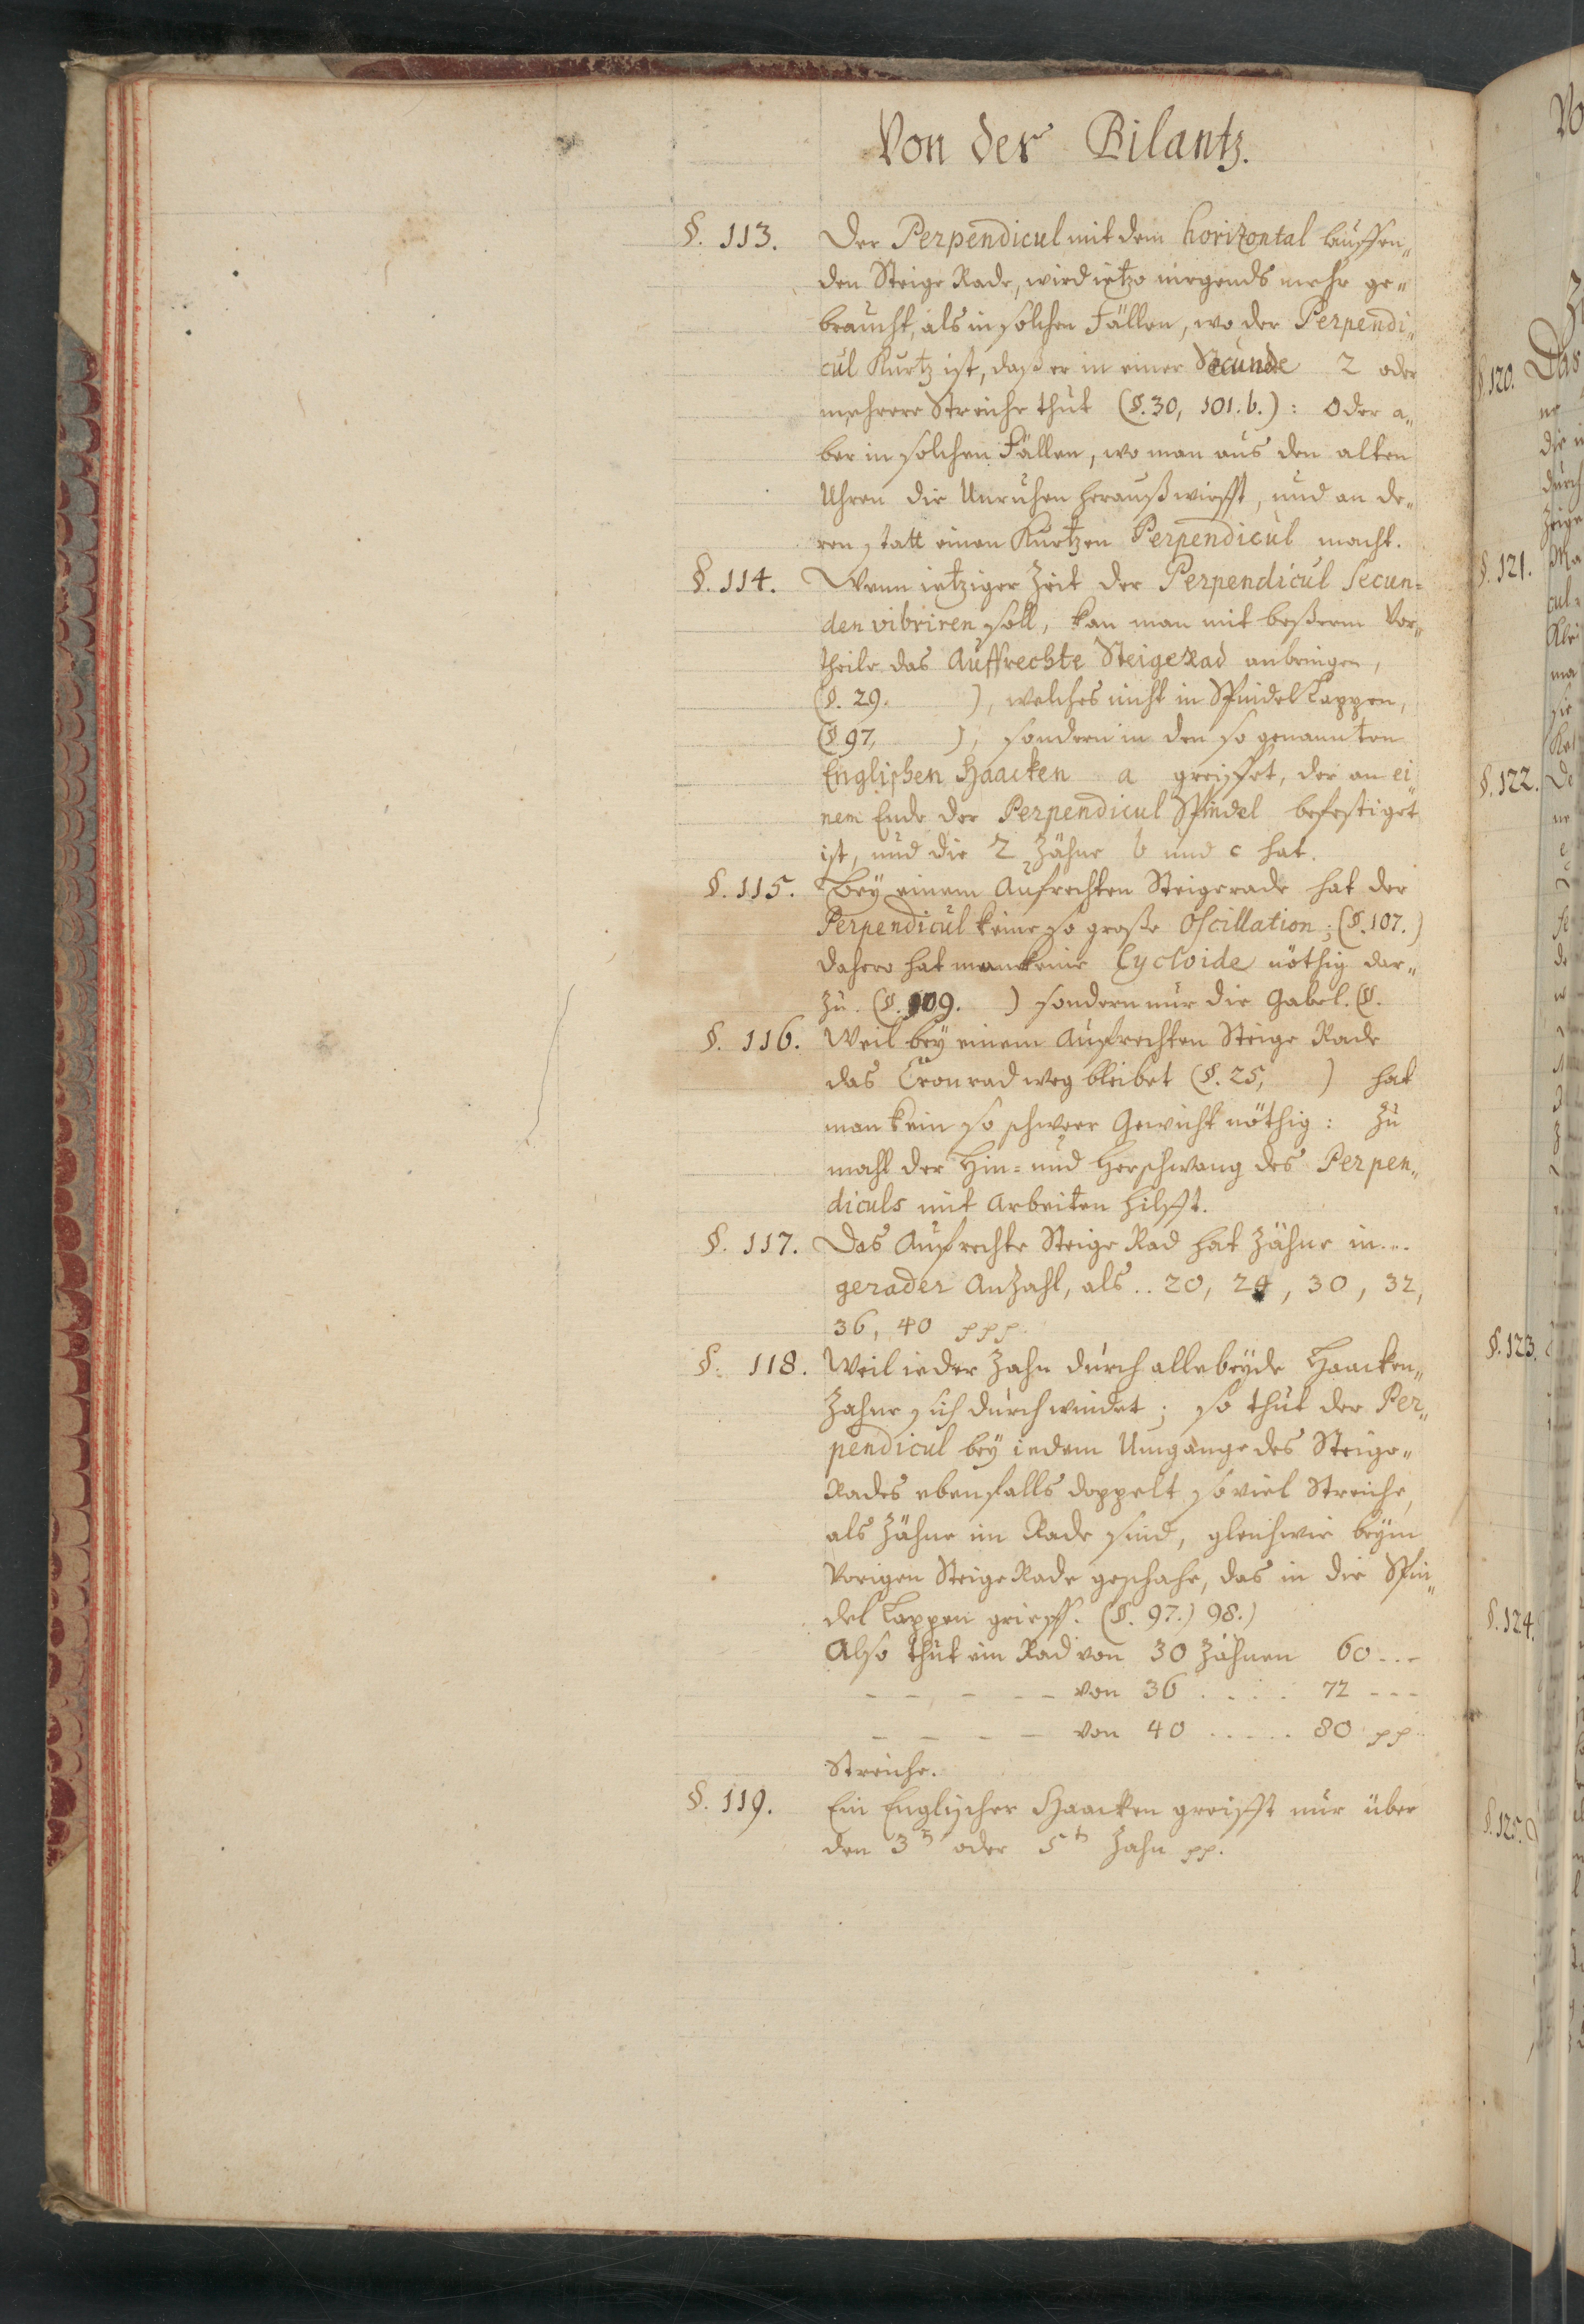 Von der Bilantz.
§. 113. Der Perpendicul mit dem horizontal lauffen„
den Steige Rade, wird ietzo nirgends mehr ge„
braucht, als in solchen Fällen, wo der Perpendi„
cul Kurtz ist, daß er in einer Secunde 2 oder
mehrere Streiche thut (§. 30, 101. b.): Oder a„
ber in solchen Fällen, wo man aus den alten
Uhren die Unruhen herauß wirfft, und an de„
ren statt einen Kurtzen Perpendicul macht.
§. 114. Wenn ietziger Zeit der Perpendicul Secun=
den vibriren soll, kan man mit beßerm Vor„
theile das Auffrechte Steigerad anbringen,
(§. 29. ), welches nicht in Spindel Lappen,
(§ 97, ), sondern in den so genannten
Englischen Haacken a greiffet, der an ei„
nem Ende der Perpendicul Spindel befestiget
ist, und die 2 Zähne b und c hat.
§. 115. Bey einem Aufrechten Steigerade hat der
Perpendicul keine so große Oscillation; (§. 107.)
dahero hat man keine Cycloide nöthig dar„
zu. (§. 109. ) sondern nur die Gabel. (§.
§. 116. Weil bey einem Aufrechten Steige Rade
das Cronrad weg bleibet (§. 25, ) hat
man kein so schweer Gewicht nöthig: Zu
mahl der Hin= und Herschwang des Perpen„
diculs mit Arbeiten hilfft.
§. 117. Das Aufrechte Steige Rad hat Zähne in...
gerader Anzahl, als.. 20, 24, 30, 32,
36, 40 ppp.
§. 118. Weil ieder Zahn durch alle beyde Haacken„
Zahne sich durchwindet; so thut der Per„
pendicul bey iedem Umgange des Steige„
Rades ebenfalls doppelt so viel Streiche,
als Zähne im Rade sind, gleichwie beym
Vorigen Steige Rade geschahe, das in die Spin„
del Lappen grieff. (§. 97.) 98.)
Also thut ein Rad von 30 Zähnen 60 ...
- - - - - von 36 ..... 72 ---
- - - - von 40 ..... 80 pp.
Streiche.
§. 119. Ein Englischer Haacken greifft nur über
den 3tn oder 5tn Zahn pp.
§. 120. Das
§. 121. Ma
§. 122. De
§. 123.
§. 124.
§. 125.